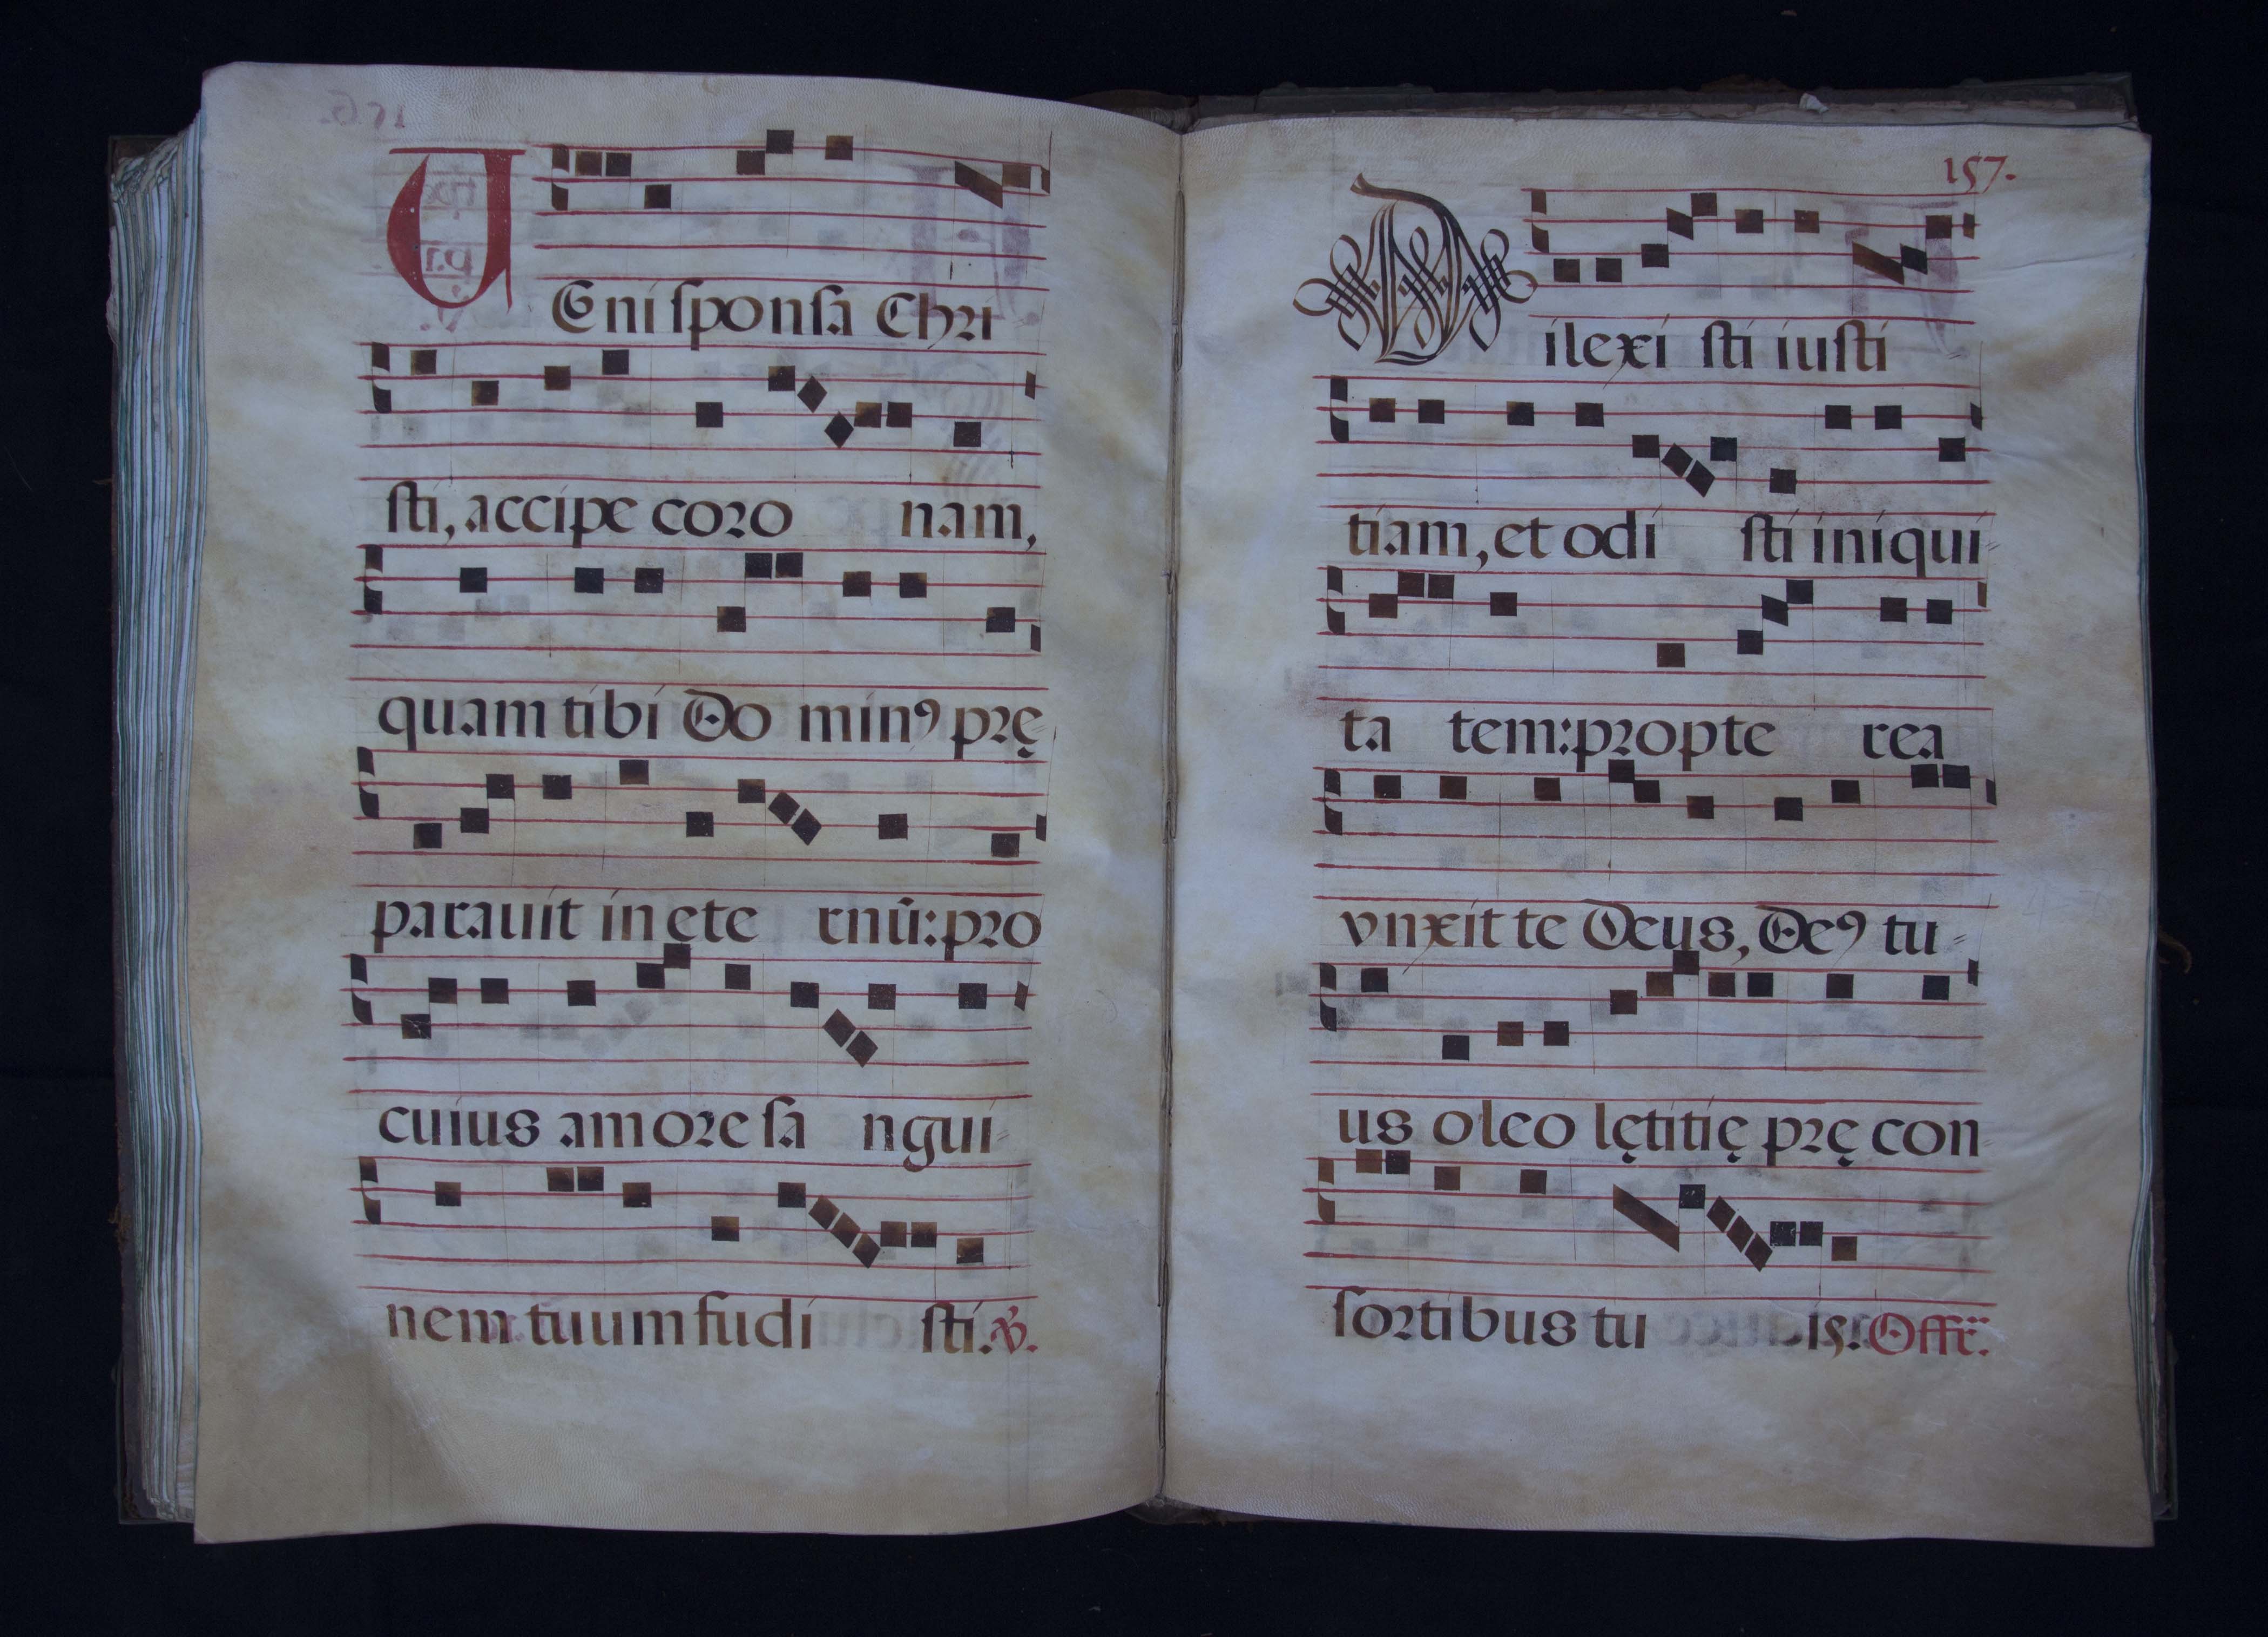 VEni ſponſa Chri
ſti, accipe coro nam,
quam tibi Do minꝰ prę
parauit in ete rnũ: pro
cuius amore ſa ngui
nem tuum fudi ſti. ℣.
157.
Dilexi ſti iuſti
tiam, et odi ſti iniqui
ta tem: propte rea
vnxit te Deus, Deꝰ tu
us oleo lętitię prę con
ſortibus tu is. Offr̄.